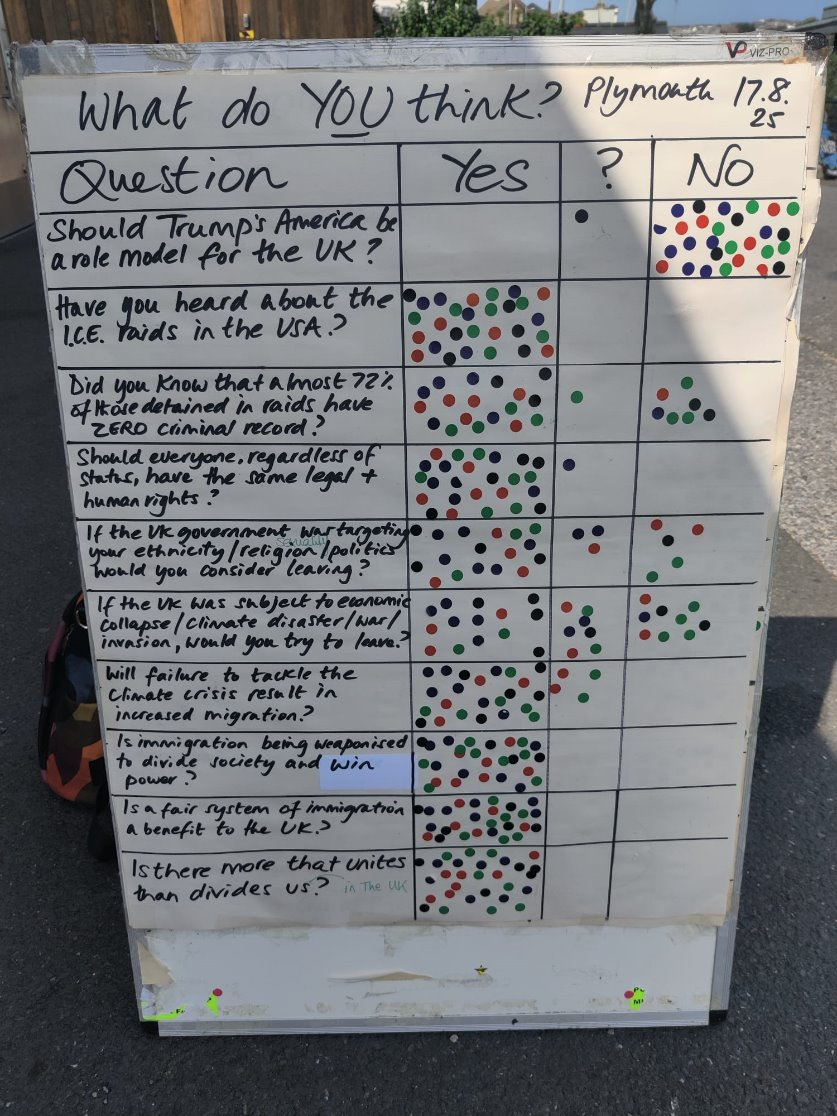 VP VIZ-PRO
What do YOU think? Plymouth 17.8.
25
Question Yes ? No
Should Trump's America be
a role model for the UK?
Have you heard about the
I.C.E. raids in the USA?
Did you know that almost 72%
of those detained in raids have
ZERO criminal record?
Should everyone, regardless of
status, have the same legal +
human rights?
If the UK government was targeting
sexuality
your ethnicity/religion/politics
would you consider leaving?
If the UK was subject to economic
collapse/climate disaster/war/
invasion, would you try to leave?
Will failure to tackle the
climate crisis result in
increased migration?
Is immigration being weaponised
to divide society and win
power?
Is a fair system of immigration
a benefit to the UK?
Is there more that unites
than divides us? in The UK